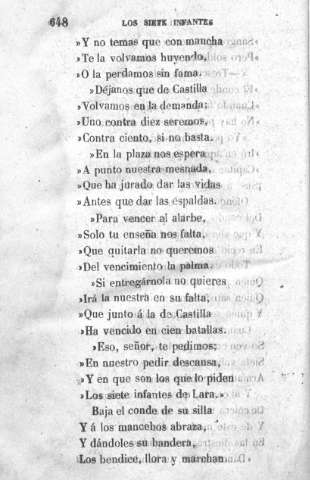 648 LOS SIETE INFANTES
»Y no temas que con mancha
»Te la volvamos huyendo,
»O la perdamos sin fama.
»Déjanos que de Castilla
»Volvamos en la demanda;
»Uno contra diez seremos,
»Contra ciento, si no basta.
»En la plaza nos espera
»A punto nuestra mesnada,
»Que ha jurado dar las vidas
»Antes que dar las espaldas.
»Para vencer al alarbe,
»Solo tu enseña nos falta,
»Que quitarla no queremos
»Del vencimiento la palma.
»Si entregárnola no quieres
»Irá la nuestra en su falta,
»Que junto á la de Castilla
»Ha vencido en cien batallas.
»Eso, señor, te pedimos;
»En nuestro pedir descansa,
»Y en que son los que lo piden
»Los siete infantes de Lara.»
Baja el conde de su silla
Y á los mancebos abraza,
Y dándoles su bandera,
Los bendice, llora y marchan